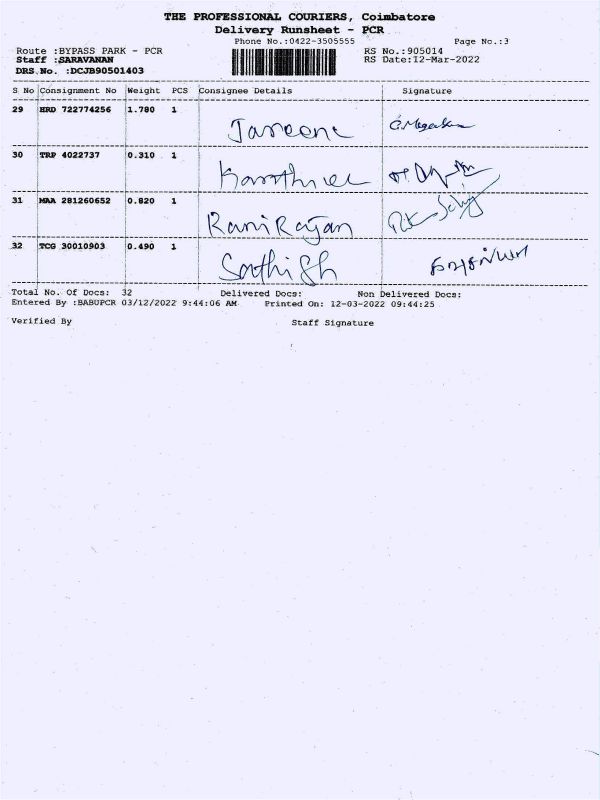 THE PROFESSIONAL COURIERS, Coimbatore
Delivery Runsheet - PCR
Phone No.:0422-3505555 Page No.:3
Route :BYPASS PARK - PCR RS No.:905014
Staff :SARAVANAN RS Date:12-Mar-2022
DRS No. :DCJB90501403
S No Consignment No Weight PCS Consignee Details Signature
29 HRD 722774256 1.780 1 Jasreene
30 TRP 4022737 0.310 1
31 MAA 281260652 0.820 1 Rani Rajan
32 TCG 30010903 0.490 1 Sathish
Total No. Of Docs: 32 Delivered Docs: Non Delivered Docs:
Entered By :BABUPCR 03/12/2022 9:44:06 AM Printed On: 12-03-2022 09:44:25
Verified By Staff Signature